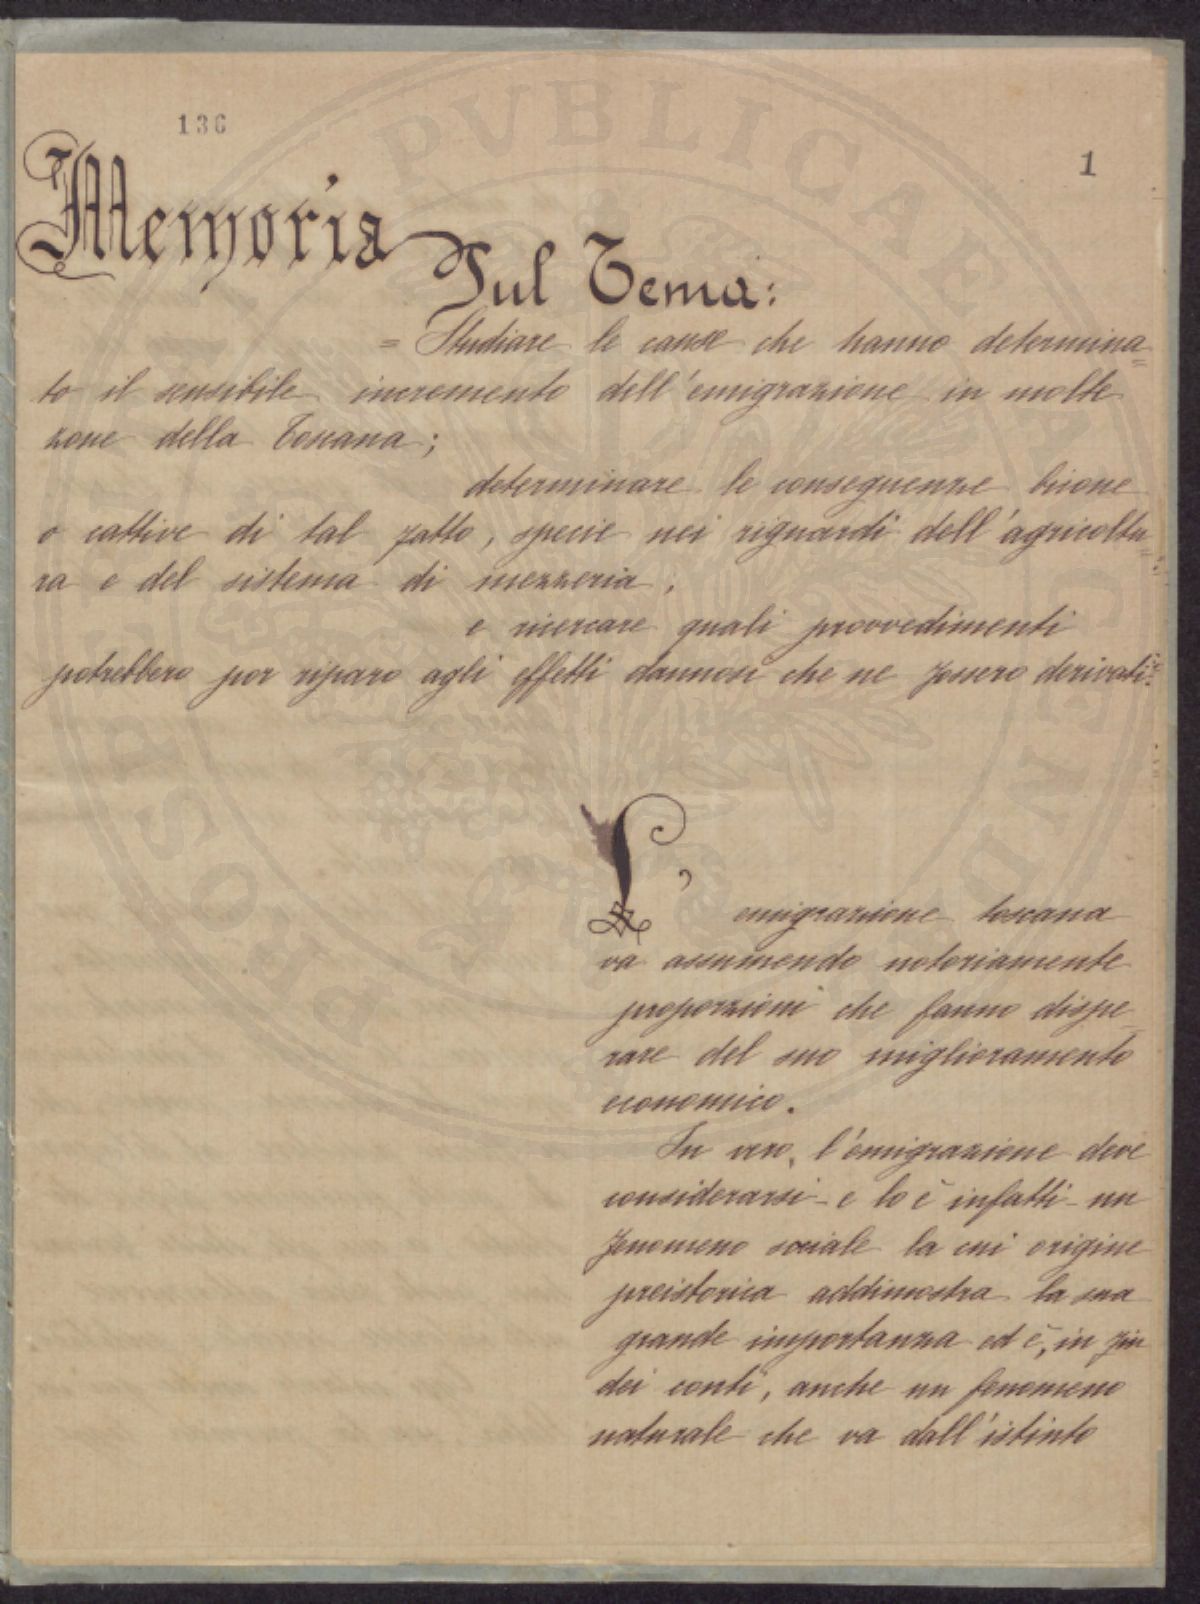 136
1
Memoria
Sul Tema:
= Studiare le cause che hanno determina=
to il sensibile incremento dell'emigrazione in molte
zone della Toscana;
determinare le conseguenze buone
o cattive di tal fatto, specie nei riguardi dell'agricoltu=
ra e del sistema di mezzeria;
e ricercare quali provvedimenti
potrebbero por riparo agli effetti dannosi che ne fossero derivati=
L'emigrazione toscana
va assumendo notoriamente
proporzioni che fanno dispe=
rare del suo miglioramento
economico.
In vero, l'emigrazione deve
considerarsi - e lo è infatti - un
fenomeno sociale la cui origine
preistorica addimostra la sua
grande importanza ed è, in fin
dei conti, anche un fenomeno
naturale che va dall'istinto